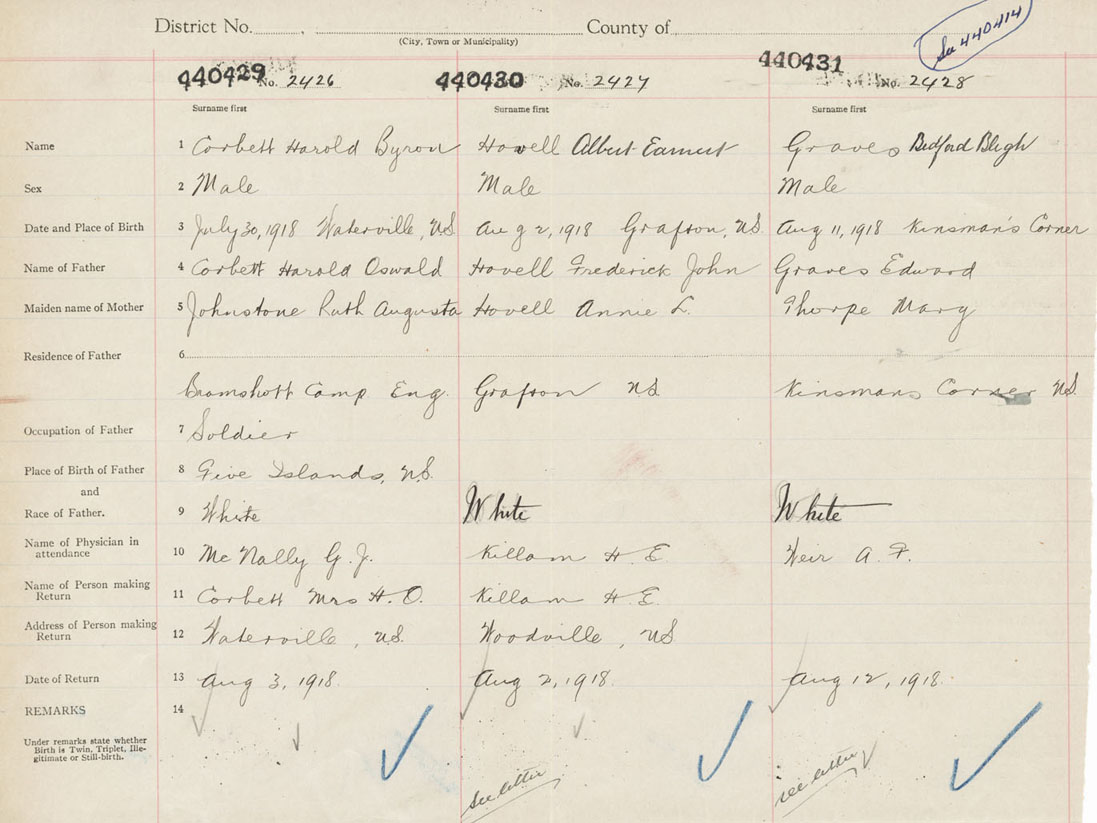 District No. County of
(City, Town or Municipality)
See 440414
440429 No. 2426 440430 No. 2427 440431 No. 2428
Surname first Surname first Surname first
Name 1 Corbett Harold Byron Hovell Albert Earnest Graves Bedford Bligh
Sex 2 Male Male Male
Date and Place of Birth 3 July 30, 1918 Waterville, N.S. Aug 2, 1918 Grafton, N.S. Aug 11, 1918 Kinsman's Corner
Name of Father 4 Corbett Harold Oswald Hovell Frederick John Graves Edward
Maiden name of Mother 5 Johnstone Ruth Augusta Hovell Annie L. Thorpe Mary
Residence of Father 6
Bramshott Camp Eng. Grafton NS Kinsmans Corner N.S.
Occupation of Father 7 Soldier
Place of Birth of Father 8 Five Islands, N.S.
and
Race of Father. 9 White White White
Name of Physician in
attendance 10 McNally G. J. Killam H. E. Weir A. F.
Name of Person making
Return 11 Corbett Mrs H. O. Killam H. E.
Address of Person making
Return 12 Waterville, N.S. Woodville, NS
Date of Return 13 Aug 3, 1918. Aug 2, 1918. Aug 12, 1918.
REMARKS 14
Under remarks state whether
Birth is Twin, Triplet, Ille-
gitimate or Still-birth.
see letter see letter